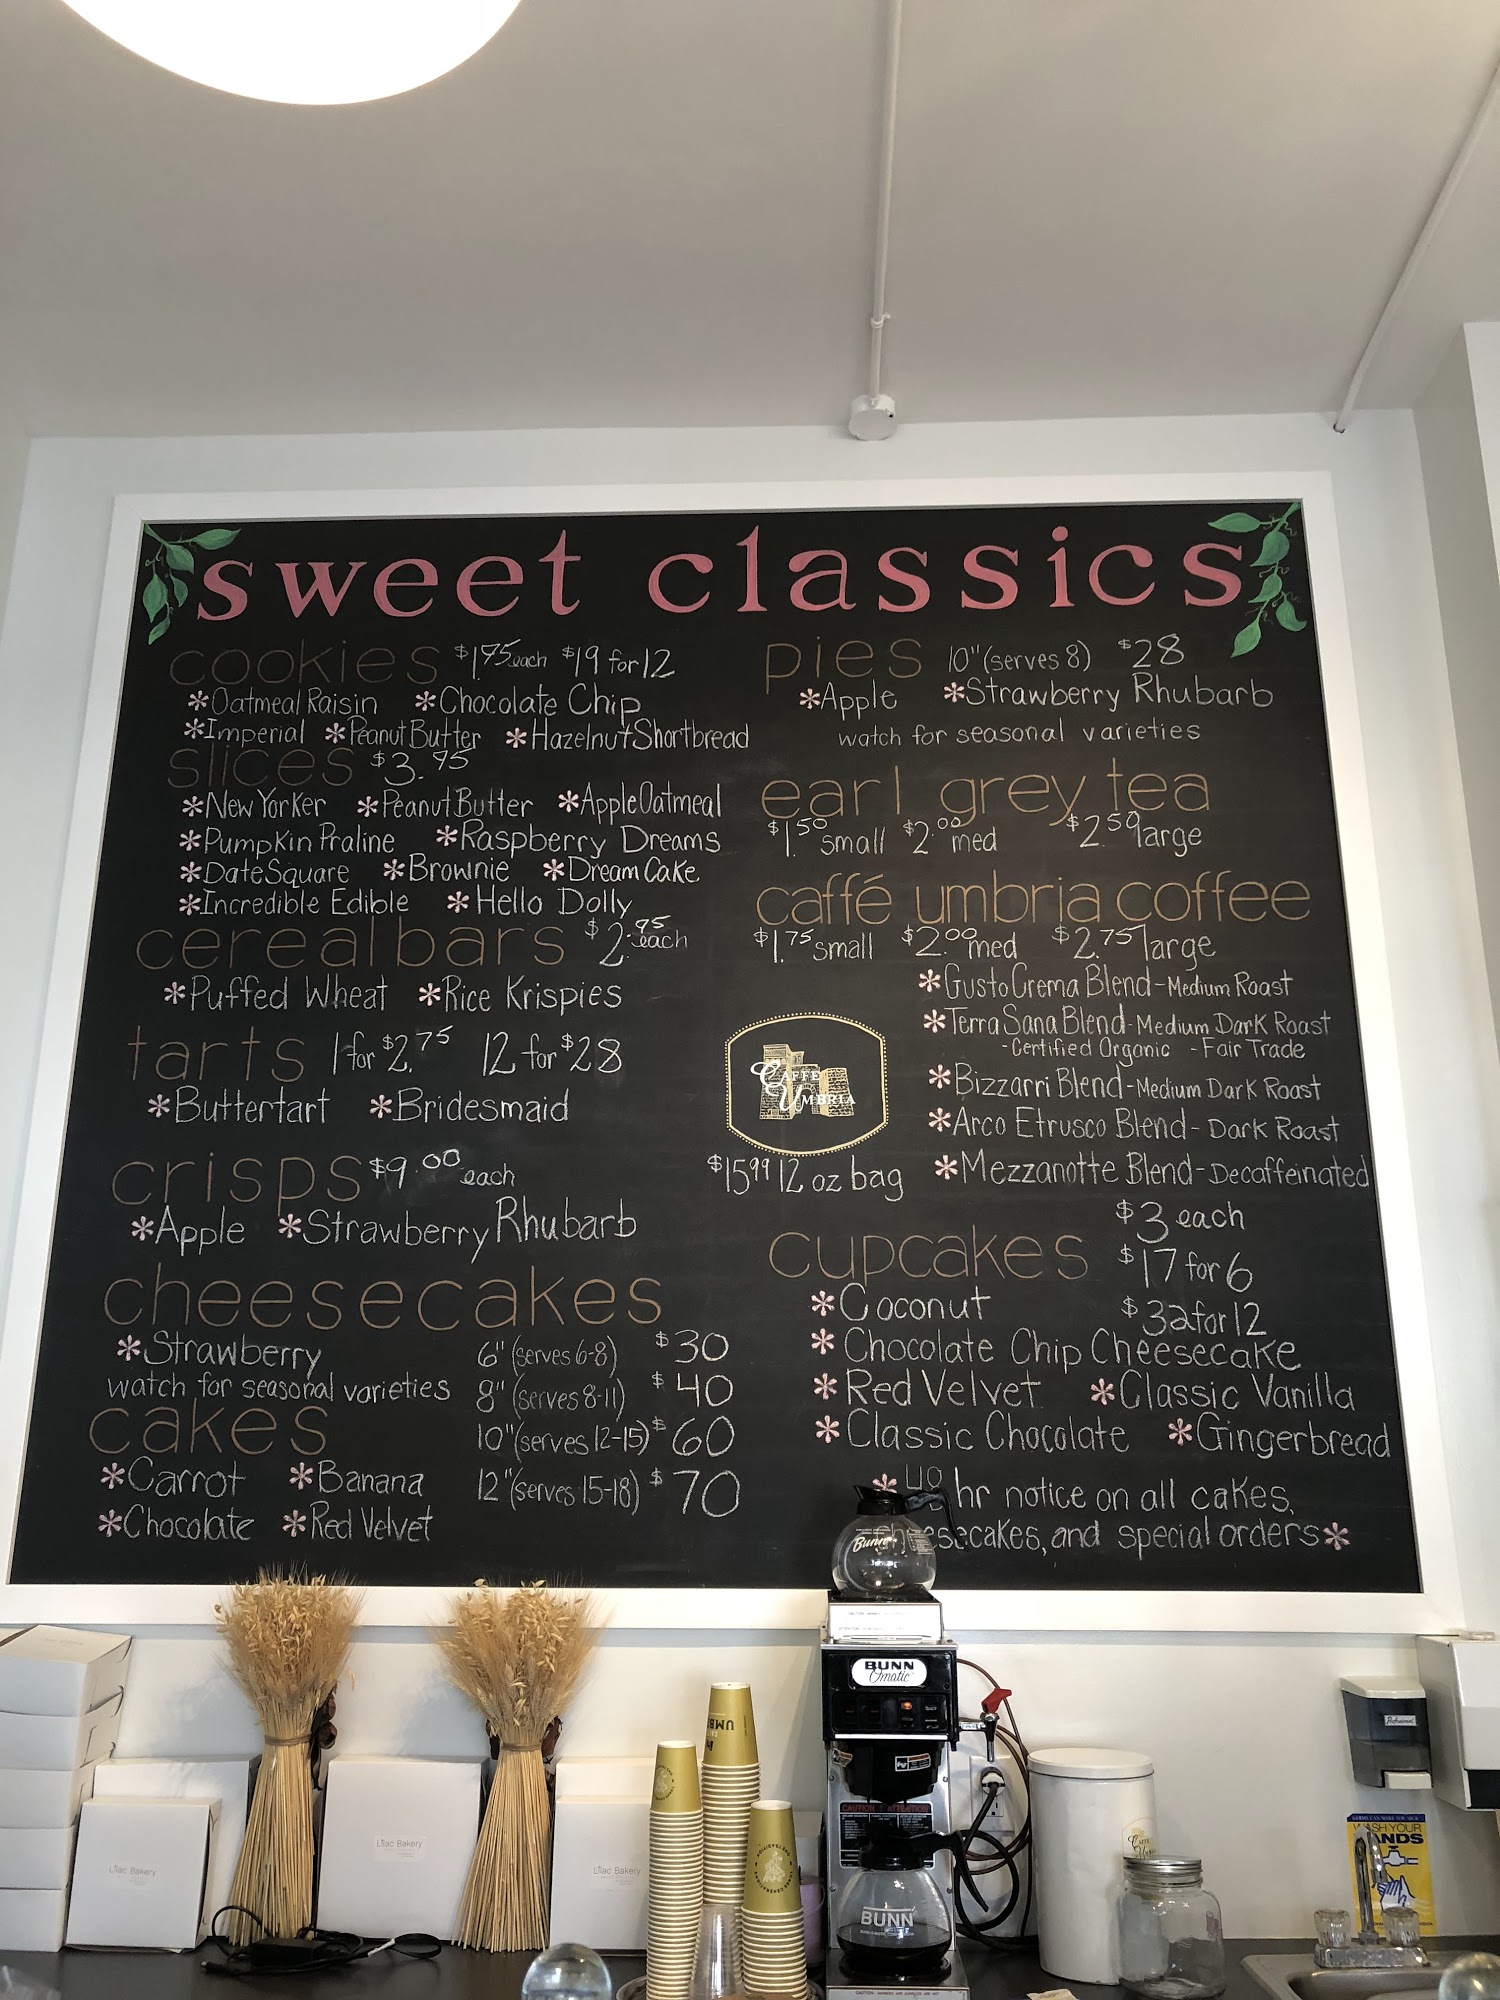 sweet classics
cookies $1.75 each $19 for 12
*Oatmeal Raisin *Chocolate Chip
*Imperial *Peanut Butter *Hazelnut Shortbread
slices $3.75
*New Yorker *Peanut Butter *Apple Oatmeal
*Pumpkin Praline *Raspberry Dreams
*Date Square *Brownie *Dream Cake
*Incredible Edible *Hello Dolly
cereal bars $2.95 each
*Puffed Wheat *Rice Krispies
tarts 1 for $2.75 12 for $28
*Buttertart *Bridesmaid
crisps $9.00 each
*Apple *Strawberry Rhubarb
cheesecakes
*Strawberry
watch for seasonal varieties
cakes
*Carrot *Banana
*Chocolate *Red Velvet
6" (serves 6-8) $30
8" (serves 8-11) $40
10" (serves 12-15) $60
12" (serves 15-18) $70
pies 10" (serves 8) $28
*Apple *Strawberry Rhubarb
watch for seasonal varieties
earl grey tea
$1.50 small $2.00 med $2.50 large
caffé umbria coffee
$1.75 small $2.00 med $2.75 large
*Gusto Crema Blend - Medium Roast
*Terra Sana Blend - Medium Dark Roast
- Certified Organic - Fair Trade
*Bizzarri Blend - Medium Dark Roast
*Arco Etrusco Blend - Dark Roast
*Mezzanotte Blend - Decaffeinated
Caffe
Umbria
$15.99 12 oz bag
cupcakes
$3 each
$17 for 6
$32 for 12
*Coconut
*Chocolate Chip Cheesecake
*Red Velvet *Classic Vanilla
*Classic Chocolate *Gingerbread
*48 hr notice on all cakes,
cheesecakes, and special orders*
Bunn
BUNN
Omatic
CAUTION ATTENTION
BUNN
Lilac Bakery
Lilac Bakery
Lilac Bakery
UMB
WASH YOUR
HANDS